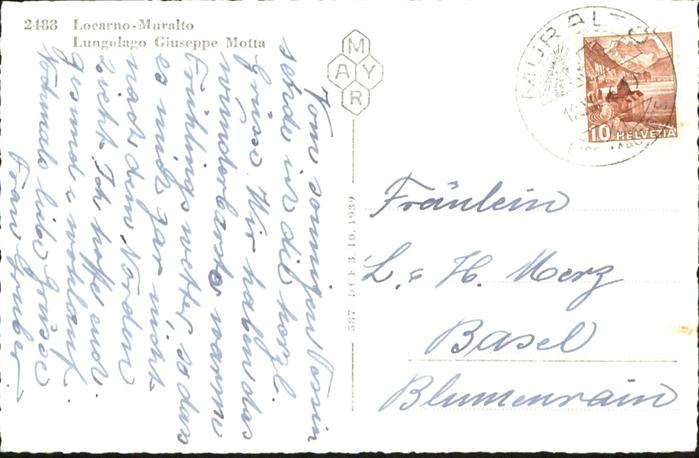 2488 Locarno-Muralto
Lungolago Giuseppe Motta
Vom sonnigen Tessin
sende ich dir herzl.
Grüsse. Wir haben das
wunderbarste warme
Frühlingswetter, so dass
es mich gar nicht
nach dem Norden
zieht. Ich hoffe euch
gesund & wohlauf.
Nochmals liebe Grüsse
Frau Gruber
MAYR
587 DCF 3.10.1939
MURALTO
10 HELVETIA
Fräulein
L. & H. Merz
Basel
Blumenrain